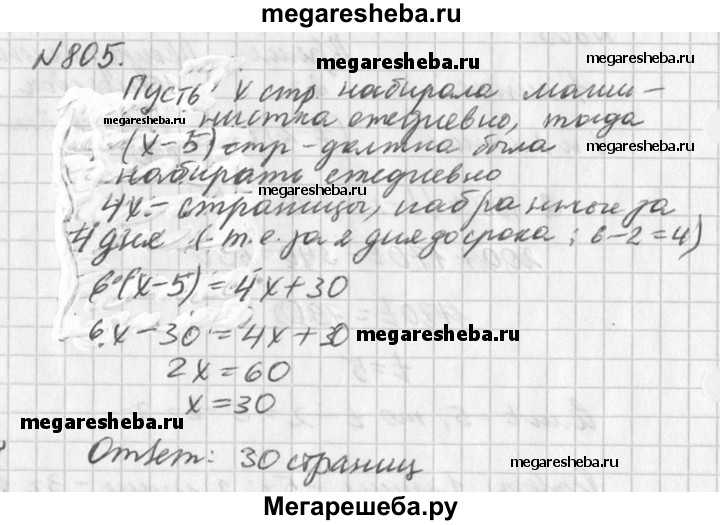 megaresheba.ru
N805.
megaresheba.ru
megaresheba.ru
Пусть х стр набирала маши-
megaresheba.ru
нистка ежедневно, тогда
(х-5) стр - должна была
megaresheba.ru
набирать ежедневно
megaresheba.ru
4х - страницы, набранные за
4 дня (т.е. за 2 дня до срока; 6-2=4)
6·(х-5) = 4х+30
6х-30 = 4х+30
2х = 60
х = 30
megaresheba.ru
megaresheba.ru
Ответ: 30 страниц
megaresheba.ru
Мегарешеба.ру